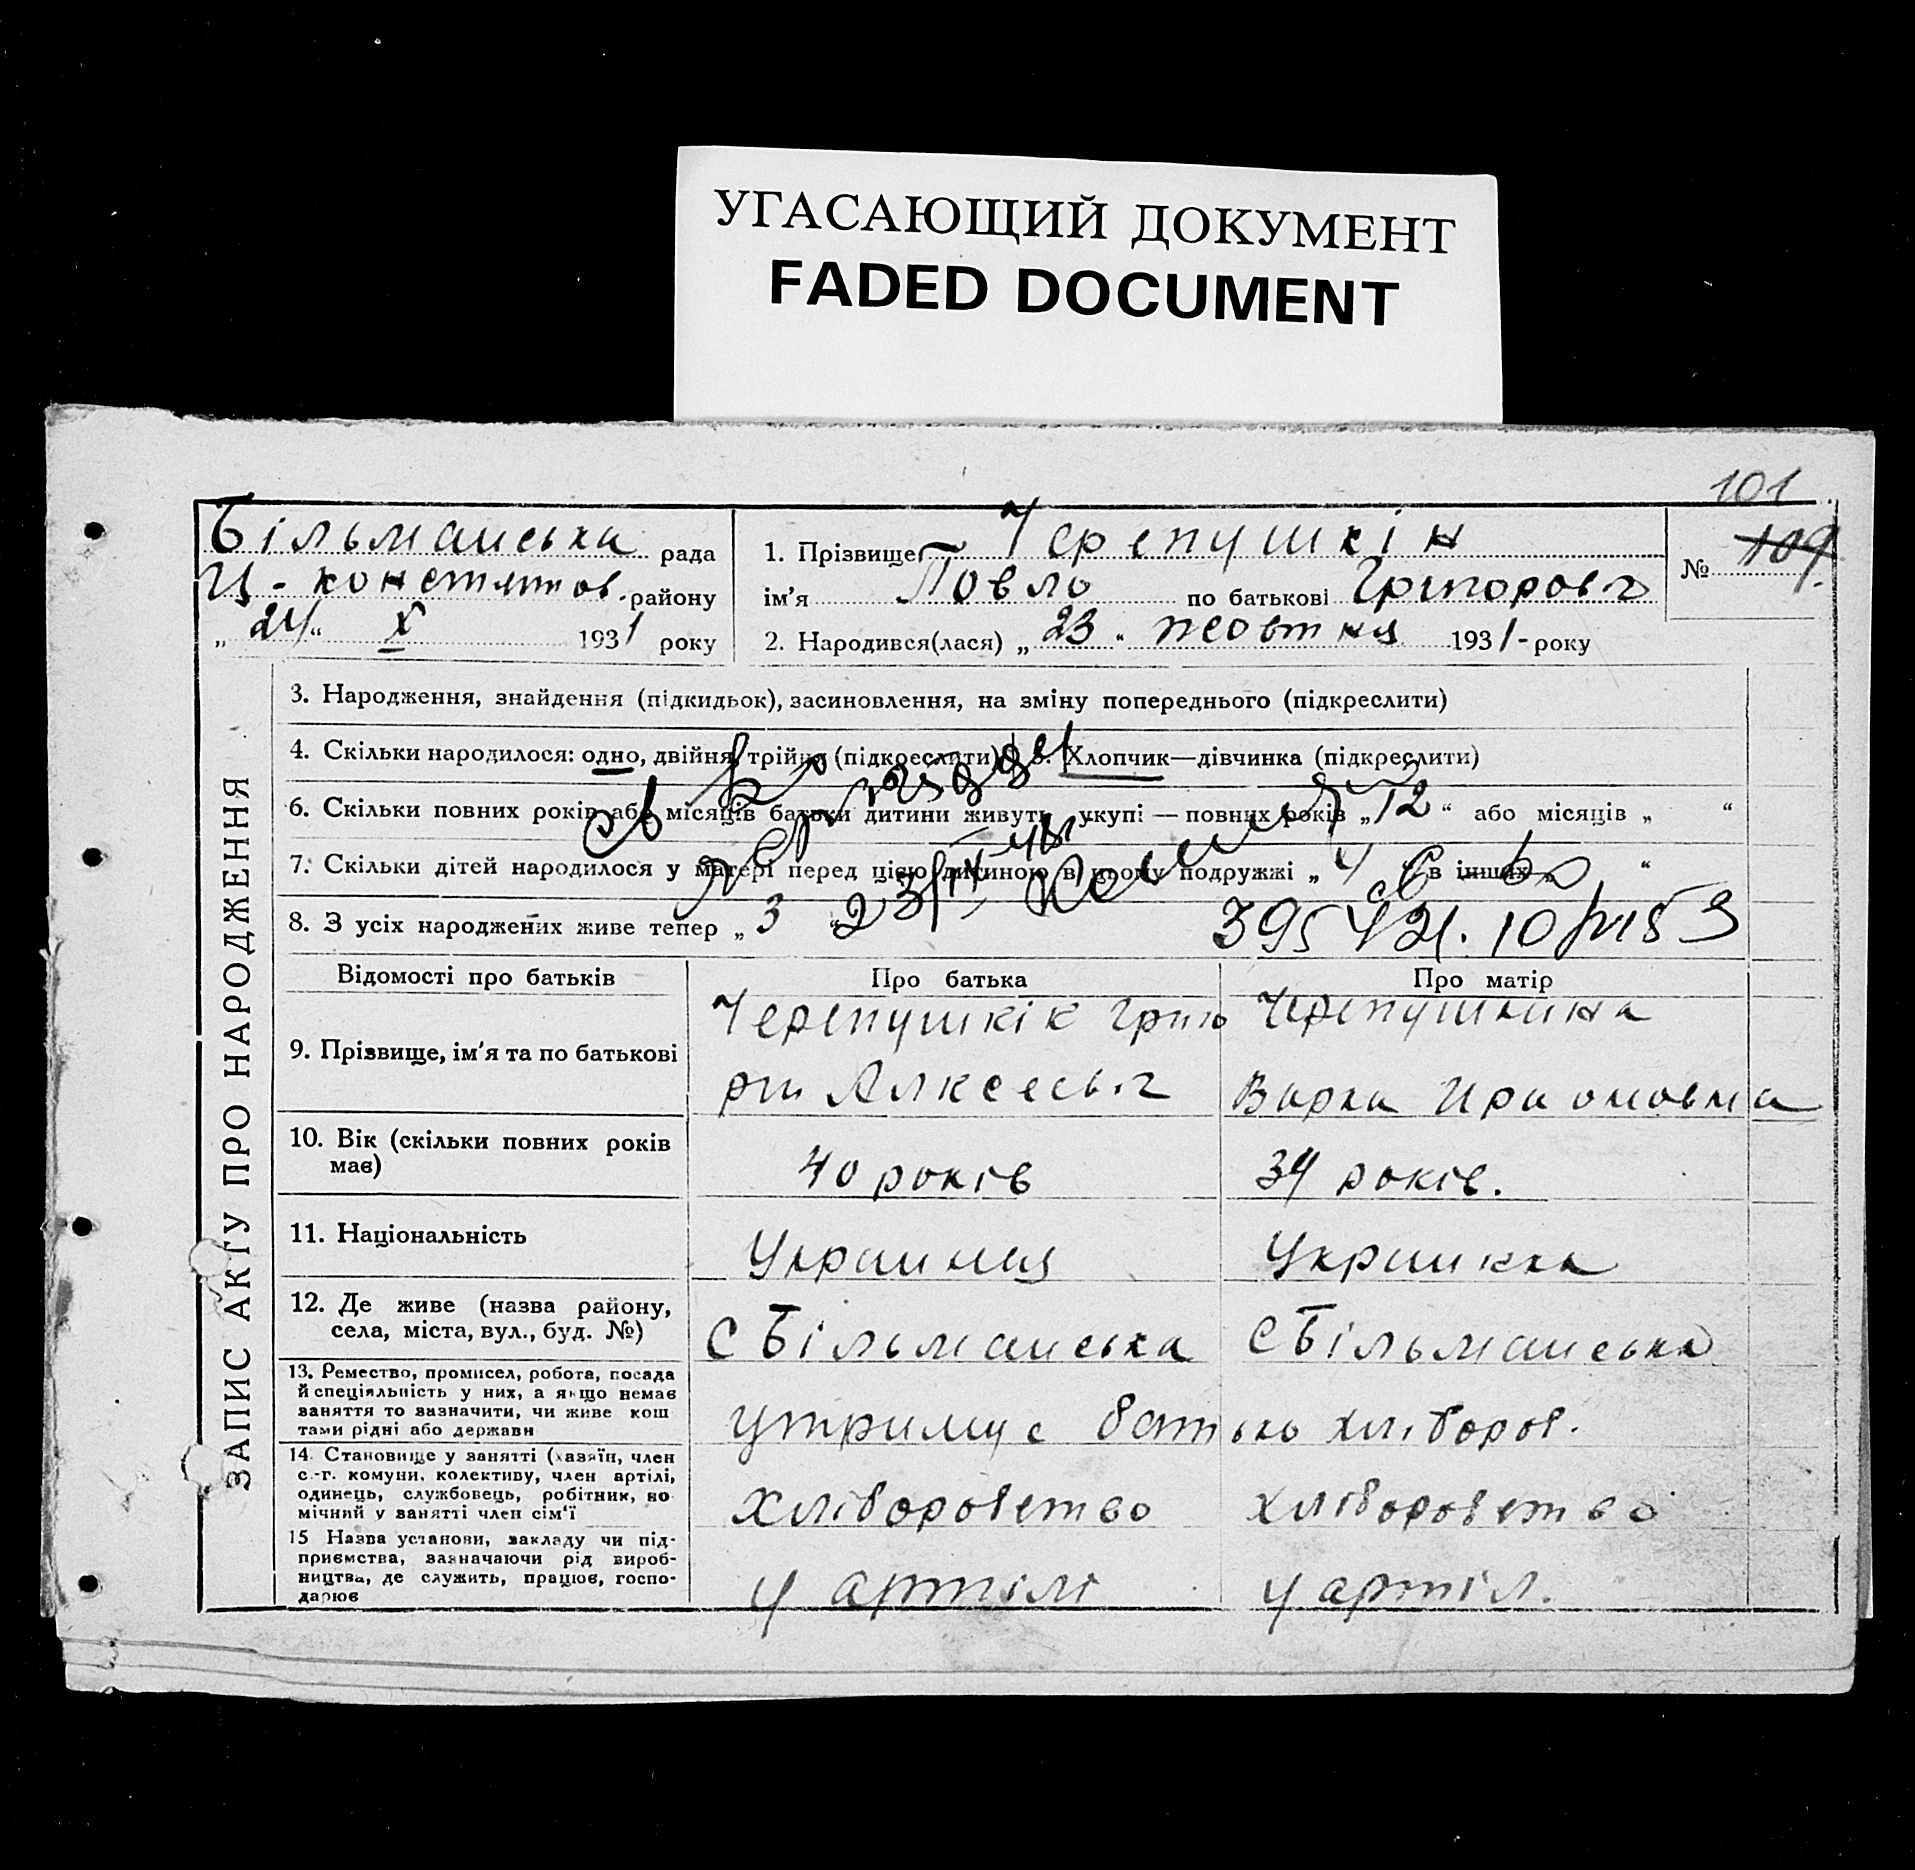 УГАСАЮЩИЙ ДОКУМЕНТ
FADED DOCUMENT
101
Більманська рада
Ц-констянтов. району
„24“ X 1931 року
1. Прізвище Черепушкін
ім'я Повло по батькові Григоров
2. Народився(лася) „23“ жовтня 1931-року
№ 109
ЗАПИС АКТУ ПРО НАРОДЖЕННЯ
3. Народження, знайдення (підкидьок), засиновлення, на зміну попереднього (підкреслити)
4. Скільки народилося: одно, двійня, трійня (підкреслити) 5. Хлопчик—дівчинка (підкреслити)
6. Скільки повних років або місяців батьки дитини живуть укупі — повних років „12“ або місяців „ “
7. Скільки дітей народилося у матері перед цією дитиною в цьому подружжі „4 в інших „ “
8. З усіх народжених живе тепер „3
Відомості про батьків Про батька Про матір
9. Прізвище, ім'я та по батькові
Черепушкік Григо
рій Алксеевіч
Черепушкина
Варка
10. Вік (скільки повних років
має)
40 років
34 років.
11. Національність
Украинця
Украинка
12. Де живе (назва району,
села, міста, вул., буд. №)
с Більманська
с Більманська
13. Ремество, промисел, робота, посада
й спеціяльність у них, а якщо немає
заняття то зазначити, чи живе кош
тами рідні або держави
утримує батько хлібороб.
14. Становище у занятті (хазяїн, член
с.-г. комуни, колективу, член артілі,
одинець, службовець, робітник, по
мічний у занятті член сім'ї
хліборобство
хліборобство
15 Назва установи, закладу чи під-
приємства, зазначаючи рід вироб-
ництва, де служить, працює, госпо-
дарює
у артілі
у артіл.